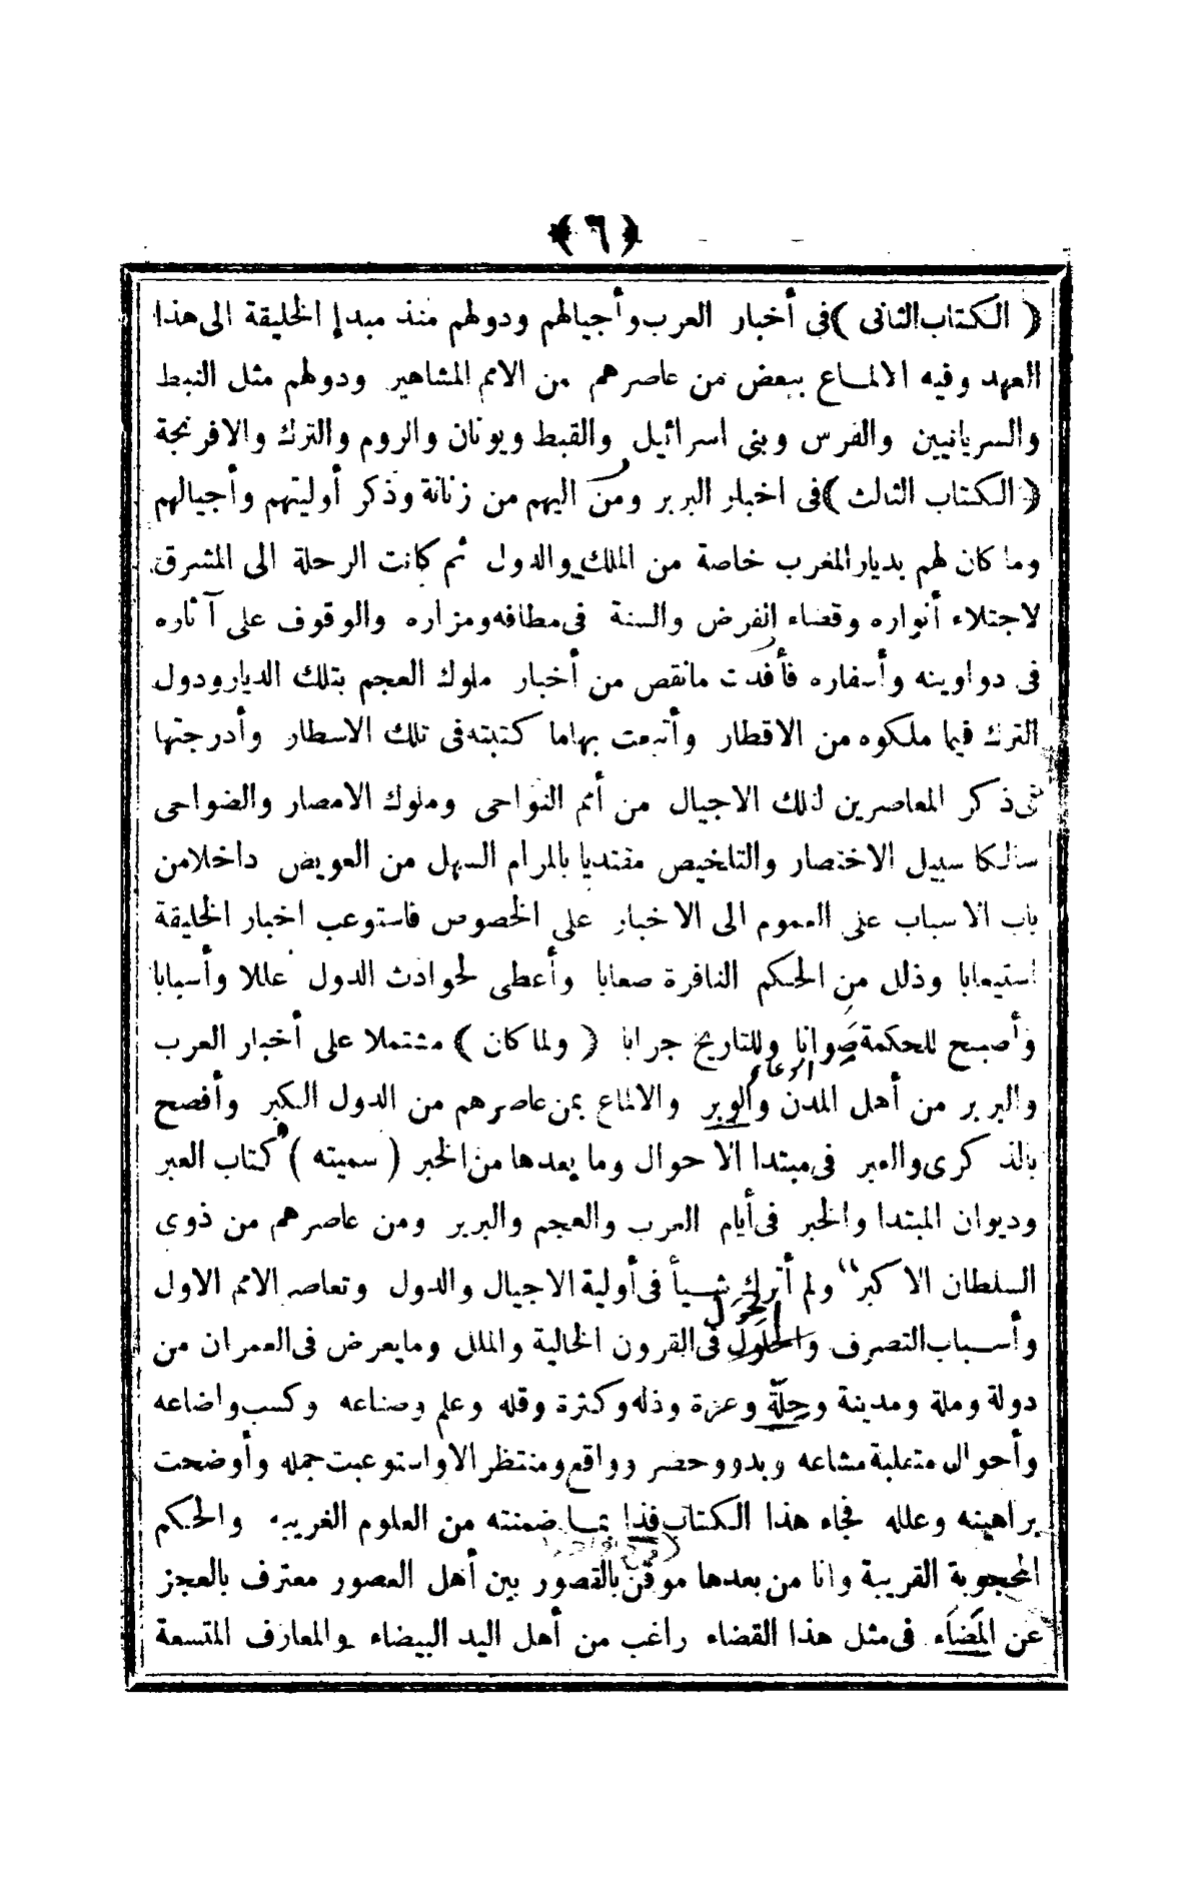 ﴿ ٦ ﴾
﴿ الكتاب الثانى ﴾ فى أخبار العرب وأجيالهم ودولهم منذ مبدإ الخليقة الى هذا
العهد وفيه الالماع ببعض من عاصرهم من الامم المشاهير ودولهم مثل النبط
والسريانيين والفرس وبني اسرائيل والقبط ويونان والروم والترك والافرنجة
﴿ الكتاب الثالث ﴾ فى اخبار البربر ومن اليهم من زناتة وذكر أوليتهم وأجيالهم
وما كان لهم بديار المغرب خاصة من الملك والدول ثم كانت الرحلة الى المشرق
لاجتلاء أنواره وقضاء الفرض والسنة فى مطافه ومزاره والوقوف على آثاره
فى دواوينه وأسفاره فأفدت مانقص من أخبار ملوك العجم بتلك الديار ودول
الترك فيما ملكوه من الاقطار وأتبعت بهاما كتبته فى تلك الاسطار وأدرجتها
فى ذكر المعاصرين لذلك الاجيال من أمم النواحى وملوك الامصار والضواحى
سالكا سبيل الاختصار والتلخيص مفتديا بالمرام السهل من العويض داخلا من
باب الاسباب على العموم الى الاخبار على الخصوص فاستوعب اخبار الخليقة
استيعابا وذلل من الحكم النافرة صعابا وأعطى لحوادث الدول عللا وأسبابا
وأصبح للحكمة صوانا وللتاريخ جرابا ﴿ ولما كان ﴾ مشتملا على أخبار العرب
والبربر من أهل المدن والوبر والالماع بمن عاصرهم من الدول الكبر وأفصح
بالذكرى والعبر فى مبتدا الاحوال وما بعدها من الخبر ( سميته ) كتاب العبر
وديوان المبتدا والخبر فى أيام العرب والعجم والبربر ومن عاصرهم من ذوى
السلطان الاكبر ولم أترك شيأ فى أولية الاجيال والدول وتعاصر الامم الاول
الحِوَل
وأسباب التصرف والحلول فى القرون الخالية والملل ومايعرض فى العمران من
دولة وملة ومدينة وحِلّة وعزة وذله وكثرة وقله وعلم وصناعه وكسب واضاعه
وأحوال متقلبة مشاعه وبدو وحضر وواقع ومنتظر الا واستوعبت جمله وأوضحت
براهينه وعلله فجاء هذا الكتاب فذا بما ضمنته من العلوم الغريبه والحكم
المحجوبة القريبة وانا من بعدها موقن بالقصور بين أهل العصور معترف بالعجز
عن المَضَاء فى مثل هذا القضاء راغب من أهل اليد البيضاء والمعارف المتسعة